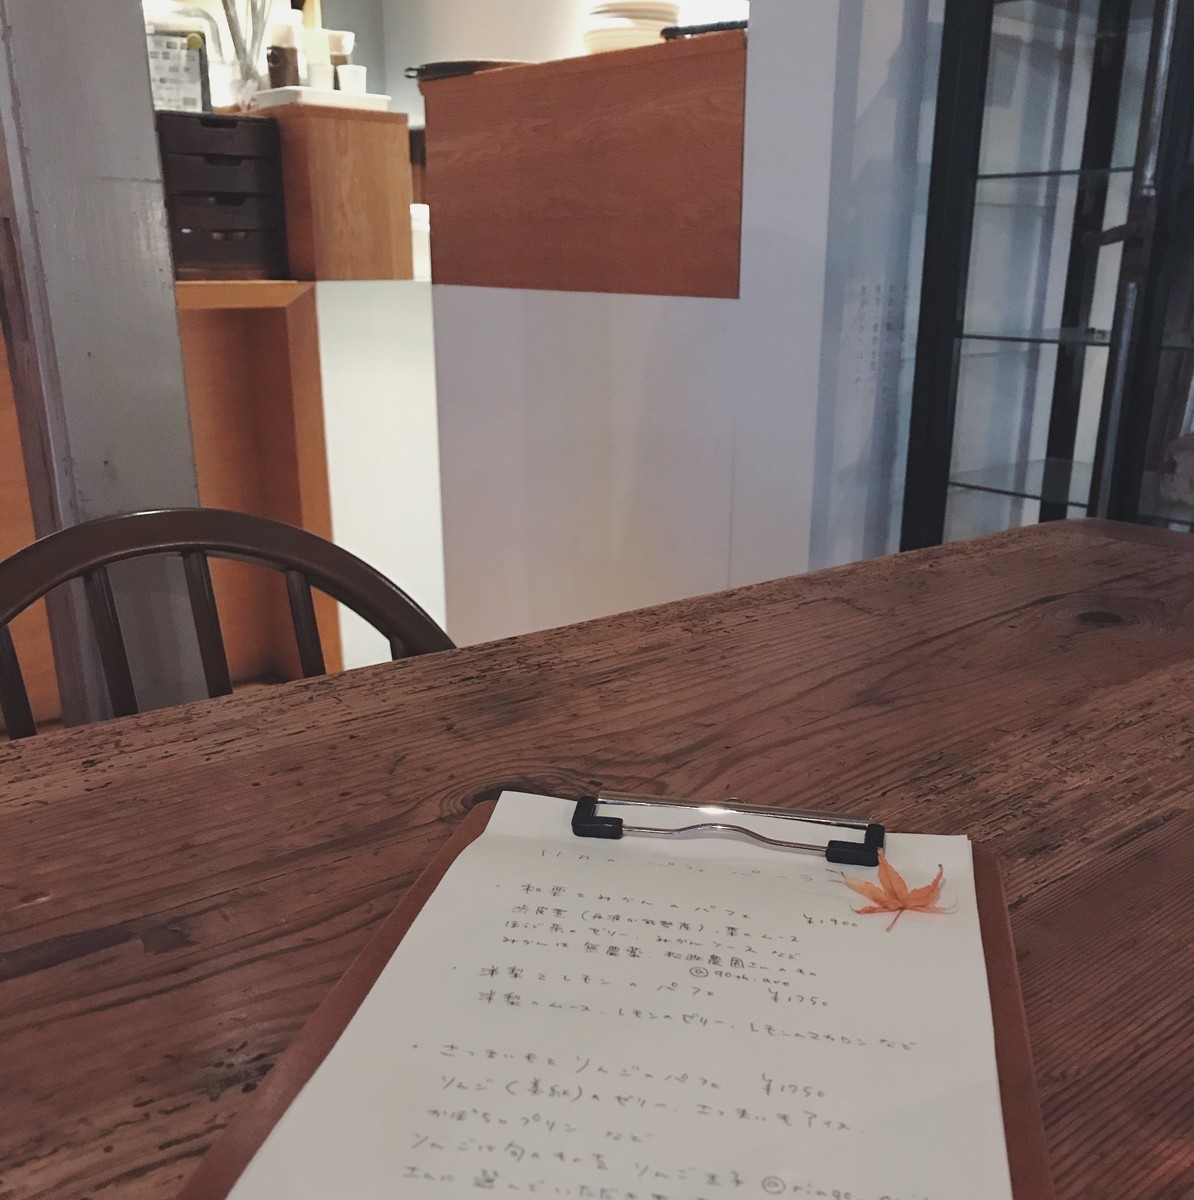 11月の パフェ パーラー
・和栗とみかんのパフェ ¥1900
渋皮煮(丹波か気熊産)、栗のムース
ほうじ茶のゼリー、みかんソース など
みかんは無農薬、松政農園さんのもの
@90th.ave
・洋梨とレモンのパフェ ¥1750
洋梨のムース、レモンのゼリー、レモンのマカロン など
・さつまいもとりんごのパフェ ¥1750
りんご(美紅)のゼリー、さつまいもアイス、
かぼちゃプリン など
りんごは旬のものを りんご王子 @ringo
さんに選んでいただき